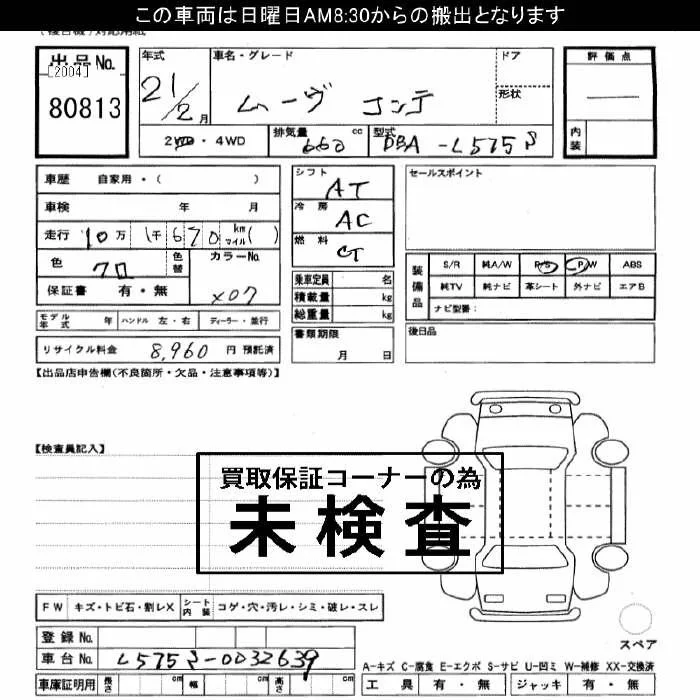 この車両は日曜日AM8:30からの搬出となります
出品No.
[2004]
80813
年式
21/2月
車名・グレード
ムーヴ コンテ
ドア
形状
評価点
内装
2WD・4WD
排気量 660 cc
型式 DBA-L575S
車歴 自家用・( )
車検 年 月
走行 10万 1千 670 km マイル( )
色 クロ
色替
カラーNo.
X07
保証書 有・無
モデル年式 年 ハンドル 左・右 ディーラー・並行
リサイクル料金 8,960 円 預託済
シフト AT
冷房 AC
燃料
乗車定員 名
積載量 kg
総重量 kg
書類期限
月 日
セールスポイント
装備品
S/R 純A/W P/S P/W ABS
純TV 純ナビ 革シート 外ナビ エアB
ナビ型番:
後日品
【出品店申告欄(不良箇所・欠品・注意事項等)】
【検査員記入】
買取保証コーナーの為
未検査
FW キズ・トビ石・割レX シート内装 コゲ・穴・汚レ・シミ・破レ・スレ
登録No.
車台No. L575S-0032639
車庫証明用 長さ cm 幅 cm 高さ cm
スペア
A-キズ C-腐食 E-エクボ S-サビ U-凹ミ W-補修 XX-交換済
工具 有・無 ジャッキ 有・無